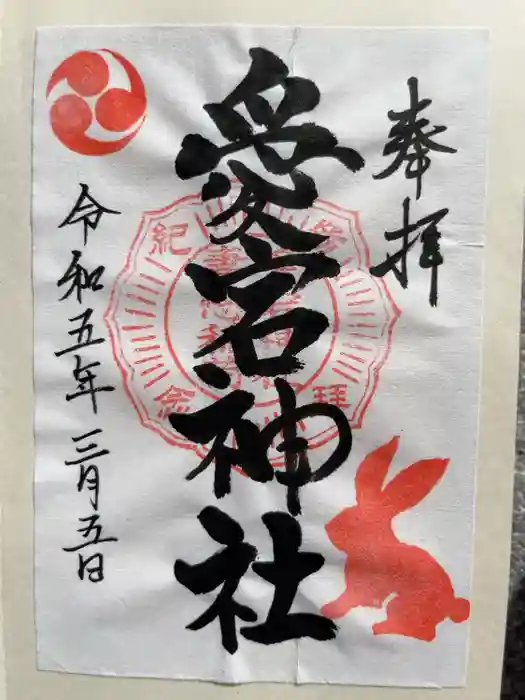 奉拝
愛宕神社
令和五年 三月五日
参拝
紀念